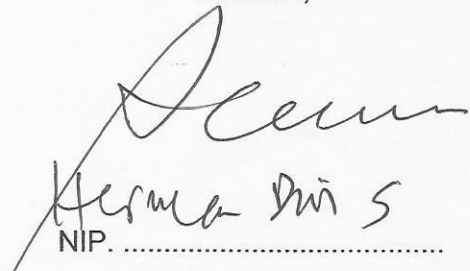 Herman Dwi S
NIP. ........................................